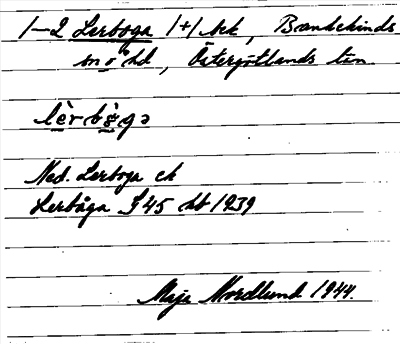 1-2 Lerboga /+/ sk, Bankekinds
sn o hd, Östergötlands län
lèrbò̤gə
Med. Lerboga ek
Lerbåga J 45 hb 1939
Maja Nordlund 1944.